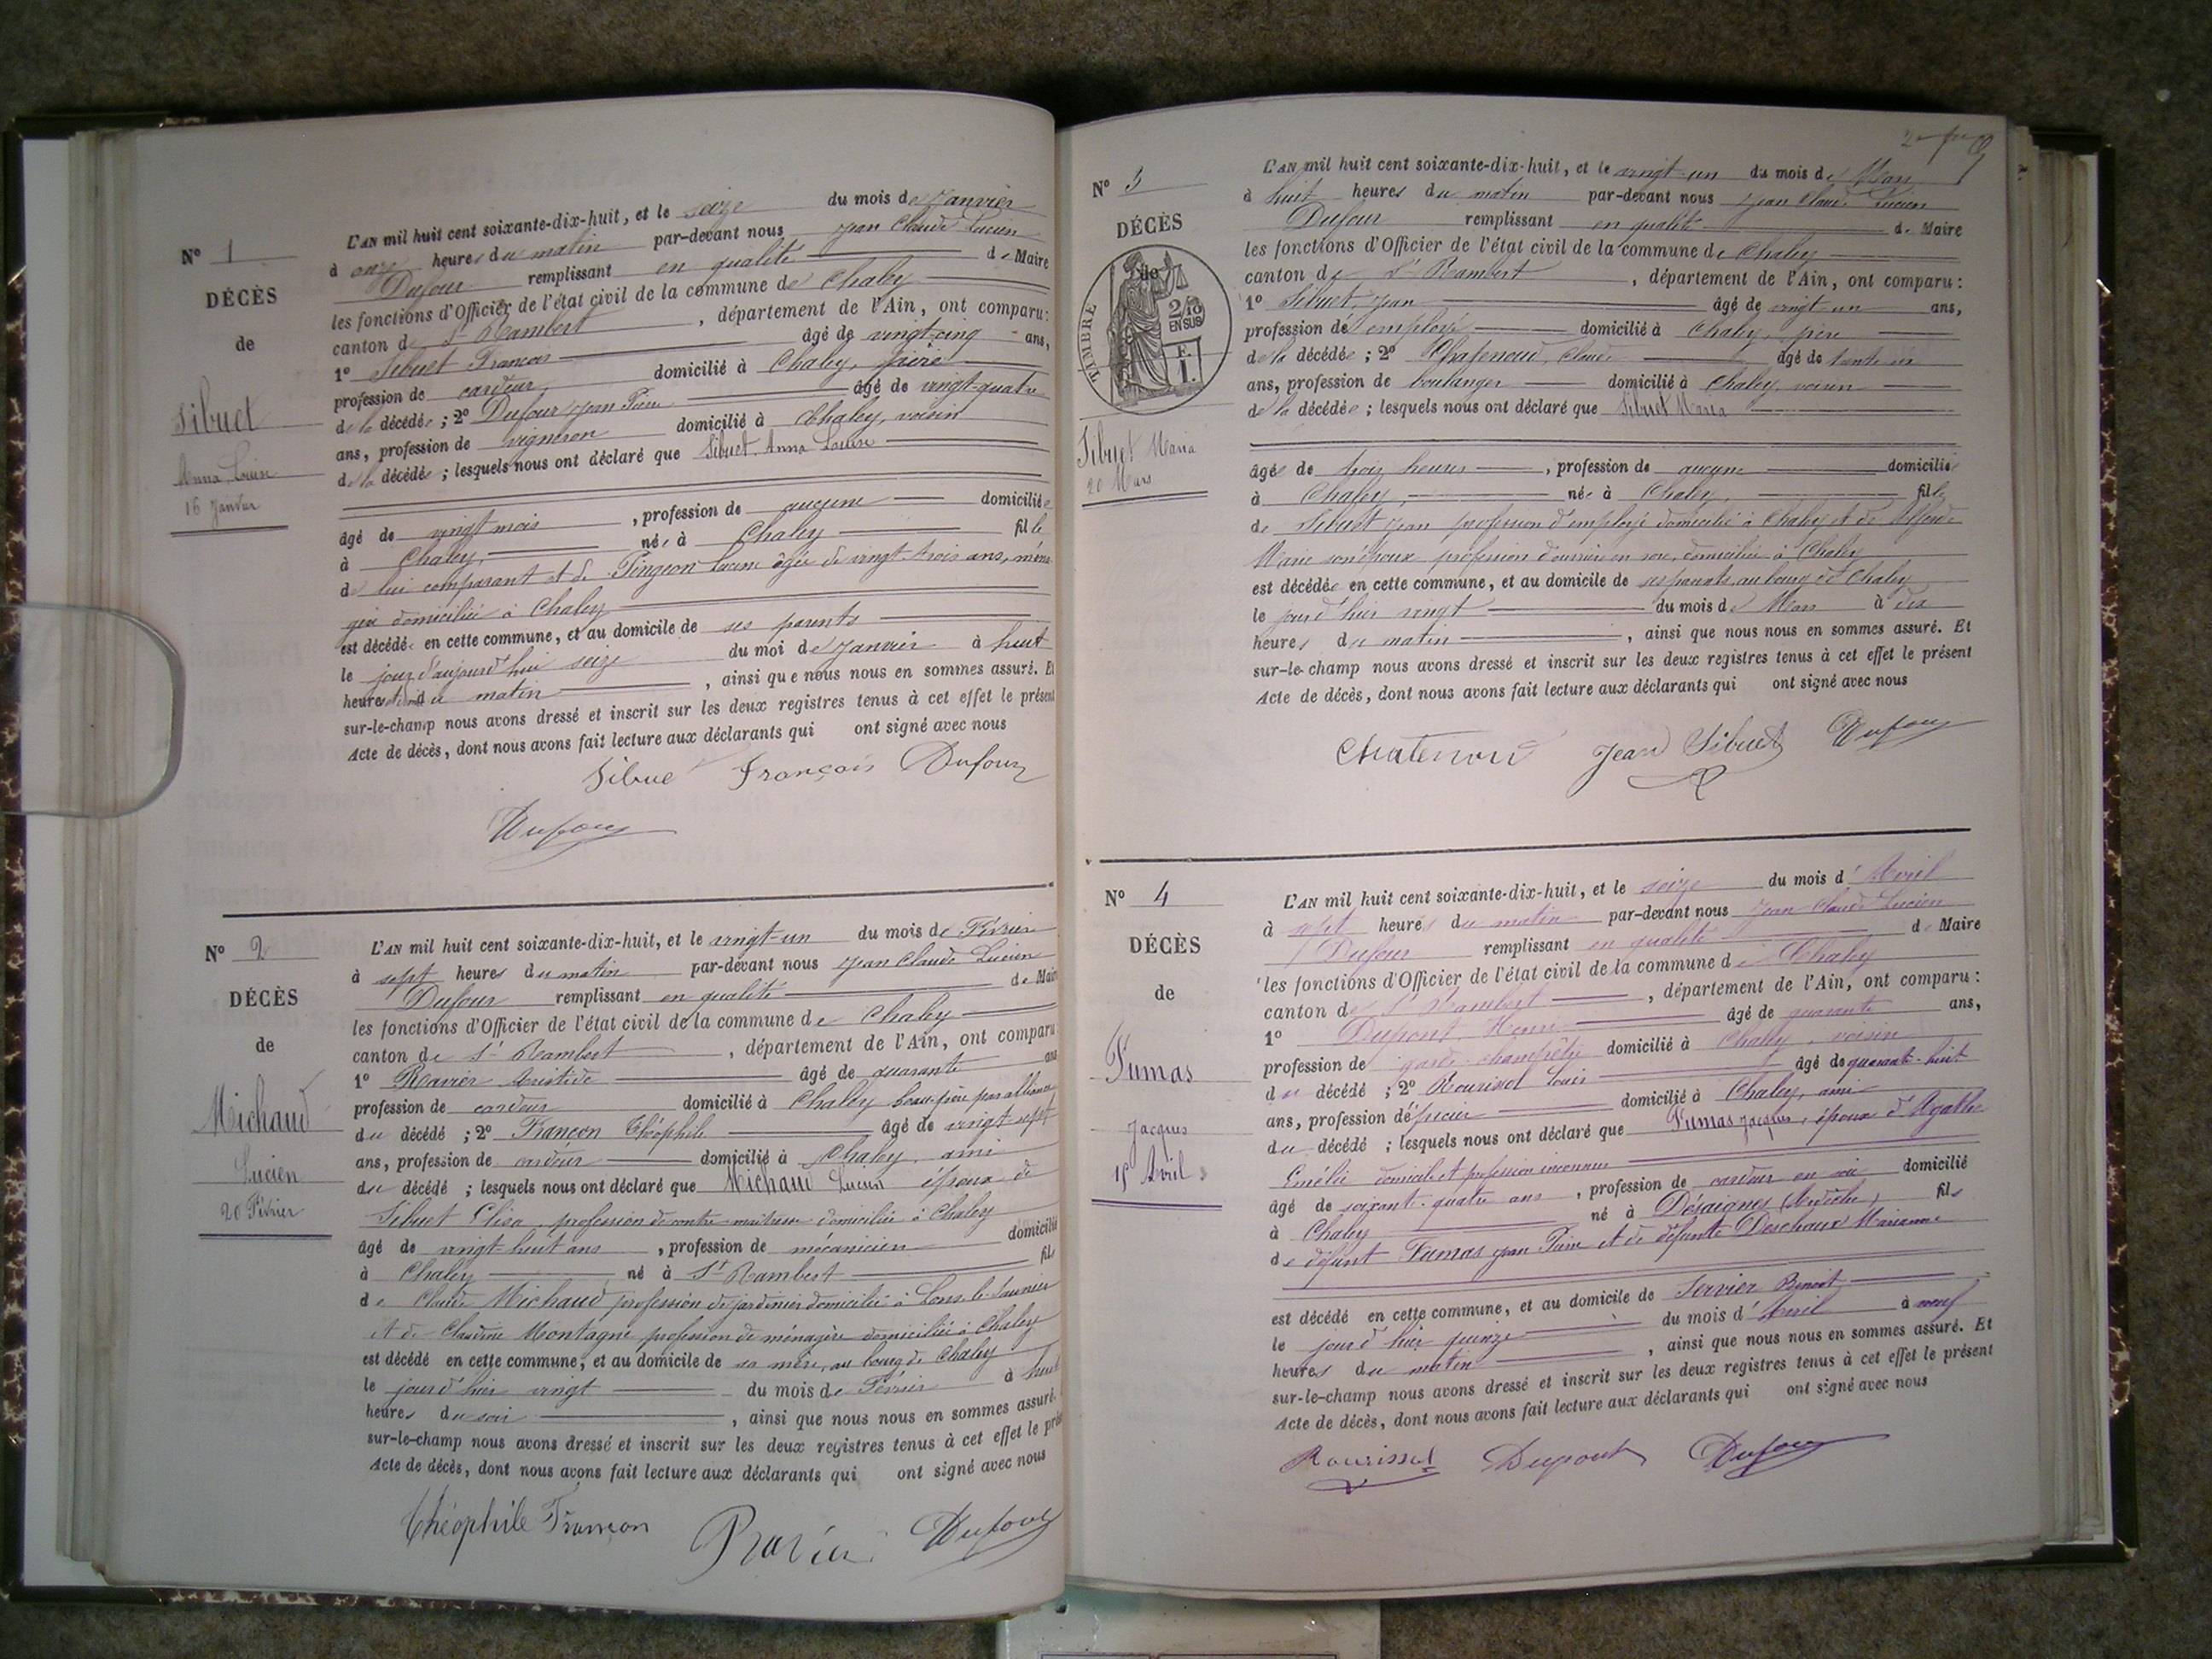 N° 1
DÉCÈS
de
Sibuet
Anna Louise
16 Janvier
L'AN mil huit cent soixante-dix-huit, et le seize du mois de Janvier
à onze heures du matin par-devant nous Jean Claude Lucien
Dufour remplissant en qualité de Maire
les fonctions d'Officier de l'état civil de la commune de Chaley
canton de St Rambert , département de l'Ain, ont comparu:
1° Sibuet François âgé de vingt-cinq ans,
profession de cardeur domicilié à Chaley, père
de la décédée ; 2° Dufour Jean Pierre âgé de vingt-quatre
ans, profession de vigneron domicilié à Chaley, voisin
de la décédée ; lesquels nous ont déclaré que Sibuet Anna Louise
âgé de vingt mois , profession de aucune domiciliée
à Chaley, née à Chaley fille
de lui comparant et de Pingeon Lucine âgée de vingt-trois ans, ména
gère domiciliée à Chaley
est décédée en cette commune, et au domicile de ses parents
le jour d'aujourd'hui seize du moi de Janvier à huit
heures du matin , ainsi que nous nous en sommes assuré. Et
sur-le-champ nous avons dressé et inscrit sur les deux registres tenus à cet effet le présent
Acte de décès, dont nous avons fait lecture aux déclarants qui ont signé avec nous
Sibue François Dufour
Dufour
N° 2
DÉCÈS
de
Michaud
Lucien
20 Février
L'AN mil huit cent soixante-dix-huit, et le vingt-un du mois de Février
à sept heures du matin par-devant nous Jean Claude Lucien
Dufour remplissant en qualité de Maire
les fonctions d'Officier de l'état civil de la commune de Chaley
canton de St Rambert , département de l'Ain, ont comparu
1° Ravier Aristide âgé de quarante ans
profession de cardeur domicilié à Chaley beau-père par alliance
du décédé ; 2° Françon Théophile âgé de vingt-sept
ans, profession de cardeur domicilié à Chaley, ami
du décédé ; lesquels nous ont déclaré que Michaud Lucien époux de
Sibuet Elisa, profession de contre-maitresse domiciliée à Chaley
âgé de vingt-huit ans , profession de mécanicien domicilié
à Chaley né à St Rambert fils
de Claude Michaud profession de jardinier domicilié à Lons-le-Saunier
et de Claudine Montagne profession de ménagère domiciliée à Chaley
est décédé en cette commune, et au domicile de sa mère, au bourg de Chaley
le jour d'hier vingt du mois de Février à huit
heures du soir , ainsi que nous nous en sommes assuré.
sur-le-champ nous avons dressé et inscrit sur les deux registres tenus à cet effet le prés
Acte de décès, dont nous avons fait lecture aux déclarants qui ont signé avec nous
Théophile Françon Ravier Dufour
N° 3
DÉCÈS
de
TIMBRE
2/10
EN SUS
F.
1.
Sibuet Maria
20 Mars
L'AN mil huit cent soixante-dix-huit, et le vingt-un du mois de Mars
à huit heures du matin par-devant nous Jean Claude Lucien
Dufour remplissant en qualité de Maire
les fonctions d'Officier de l'état civil de la commune de Chaley
canton de St Rambert , département de l'Ain, ont comparu:
1° Sibuet, Jean âgé de vingt-un ans,
profession de employé domicilié à Chaley, père
de la décédée ; 2° Chatenoud, Claude âgé de trente un
ans, profession de boulanger domicilié à Chaley, voisin
de la décédée ; lesquels nous ont déclaré que Sibuet Maria
âgée de trois heures , profession de aucune domiciliée
à Chaley, née à Chaley, fille
de Sibuet Jean profession d'employé domicilié à Chaley et de
Marie son épouse profession d'ouvrière en soie, domiciliée à Chaley
est décédée en cette commune, et au domicile de ses parents, au bourg de Chaley
le jour d'hier vingt du mois de Mars à dix
heures du matin , ainsi que nous nous en sommes assuré. Et
sur-le-champ nous avons dressé et inscrit sur les deux registres tenus à cet effet le présent
Acte de décès, dont nous avons fait lecture aux déclarants qui ont signé avec nous
Chatenoud Jean Sibuet Dufour
N° 4
DÉCÈS
de
Dumas
Jacques
15 Avril
L'AN mil huit cent soixante-dix-huit, et le seize du mois d'Avril
à sept heures du matin par-devant nous Jean Claude Lucien
Dufour remplissant en qualité de Maire
les fonctions d'Officier de l'état civil de la commune de Chaley
canton de St Rambert , département de l'Ain, ont comparu :
1° Dupont, Henri âgé de quarante ans,
profession de garde-champêtre domicilié à Chaley, voisin
du décédé ; 2° Rourissol Louis âgé de quarante-huit
ans, profession d'épicier domicilié à Chaley, ami
du décédé ; lesquels nous ont déclaré que Dumas Jacques, époux d'Agathe
Emélie domicile et profession inconnus
âgé de soixante-quatre ans , profession de cardeur en soie domicilié
à Chaley né à Désaignes (Ardèche) fils
de défunt Dumas Jean Pierre et de défunte Deschaux Marianne
est décédé en cette commune, et au domicile de Servier Benoit
le jour d'hier quinze du mois d'Avril à neuf
heures du matin , ainsi que nous nous en sommes assuré. Et
sur-le-champ nous avons dressé et inscrit sur les deux registres tenus à cet effet le présent
Acte de décès, dont nous avons fait lecture aux déclarants qui ont signé avec nous
Rourissol Dupont Dufour